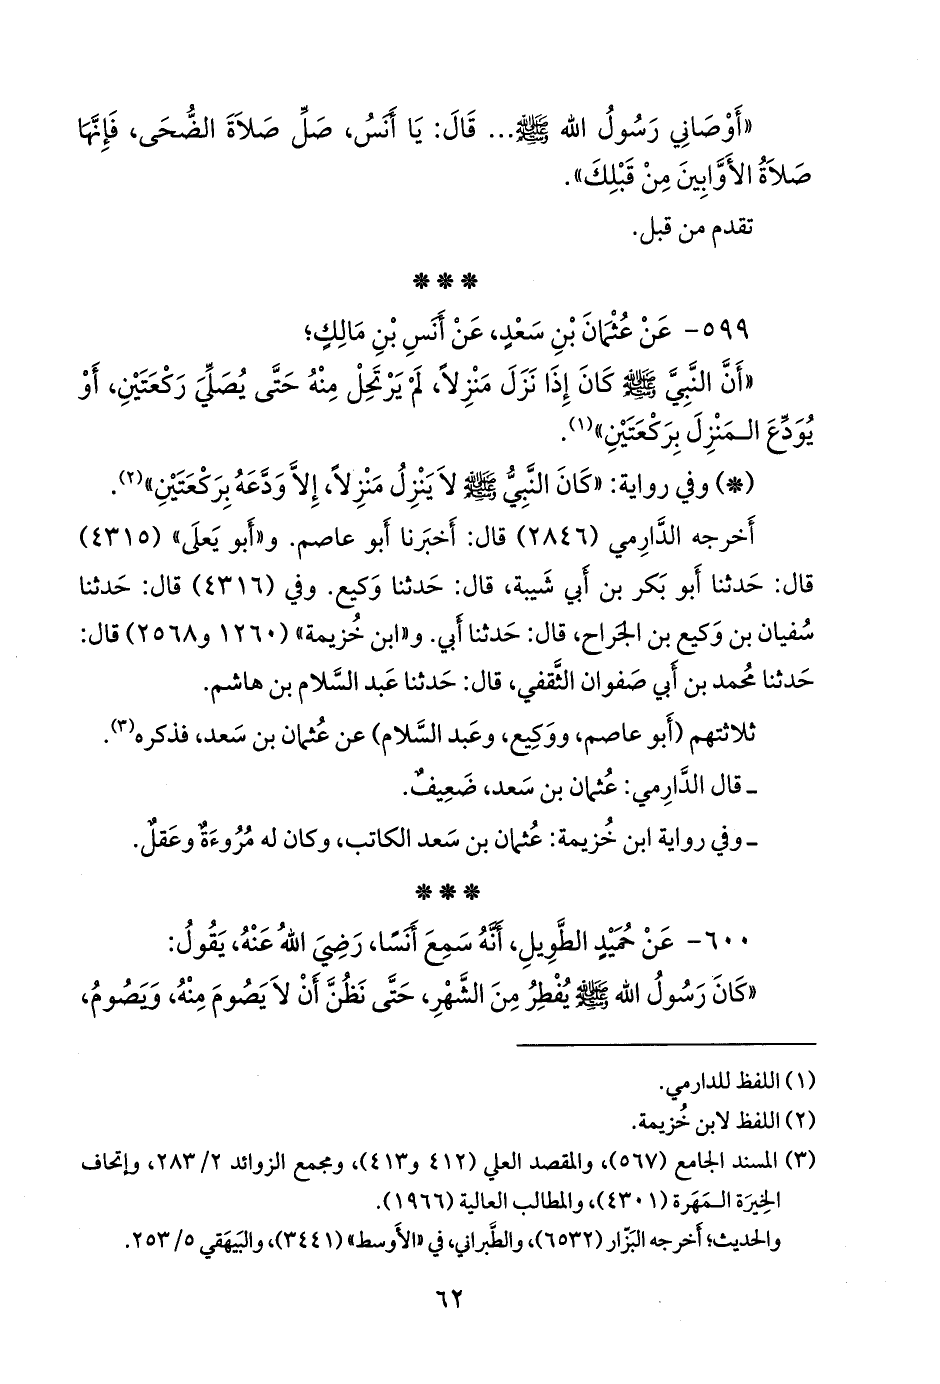 «أَوْصَانِي رَسُولُ الله ﷺ... قَالَ: يَا أَنَسُ، صَلِّ صَلاَةَ الضُّحَى، فَإِنَّهَا
صَلاَةُ الأَوَّابِينَ مِنْ قَبْلِكَ».
تقدم من قبل.
* * *
٥٩٩- عَنْ عُثْمَانَ بْنِ سَعْدٍ، عَنْ أَنَسِ بْنِ مَالِكٍ؛
«أَنَّ النَّبِيَّ ﷺ كَانَ إِذَا نَزَلَ مَنْزِلاً، لَمْ يَرْتَحِلْ مِنْهُ حَتَّى يُصَلِّيَ رَكْعَتَيْنِ، أَوْ
يُوَدِّعَ الـمَنْزِلَ بِرَكْعَتَيْنِ»(١).
(*) وفي رواية: «كَانَ النَّبِيُّ ﷺ لاَ يَنْزِلُ مَنْزِلاً، إِلاَّ وَدَّعَهُ بِرَكْعَتَيْنِ»(٢).
أَخرجه الدَّارِمي (٢٨٤٦) قال: أَخبَرنا أَبو عاصم. و«أَبو يَعلَى» (٤٣١٥)
قال: حَدثنا أَبو بَكر بن أَبي شَيبة، قال: حَدثنا وَكيع. وفي (٤٣١٦) قال: حَدثنا
سُفيان بن وَكيع بن الجَراح، قال: حَدثنا أَبي. و«ابن خُزيمة» (١٢٦٠ و٢٥٦٨) قال:
حَدثنا مُحمد بن أَبي صَفوان الثَّقفي، قال: حَدثنا عَبد السَّلام بن هاشم.
ثلاثتهم (أَبو عاصم، ووَكِيع، وعَبد السَّلام) عن عُثمان بن سَعد، فذكره(٣).
ـ قال الدَّارِمي: عُثمان بن سَعد، ضَعِيفٌ.
ـ وفي رواية ابن خُزيمة: عُثمان بن سَعد الكاتب، وكان له مُرُوءَةٌ وعَقلٌ.
* * *
٦٠٠- عَنْ حُمَيْدٍ الطَّوِيلِ، أَنَّهُ سَمِعَ أَنَسًا، رَضِيَ اللهُ عَنْهُ، يَقُولُ:
«كَانَ رَسُولُ الله ﷺ يُفْطِرُ مِنَ الشَّهْرِ، حَتَّى نَظُنَّ أَنْ لاَ يَصُومَ مِنْهُ، وَيَصُومُ،
(١) اللفظ للدارمي.
(٢) اللفظ لابن خُزيمة.
(٣) المسند الجامع (٥٦٧)، والمقصد العلي (٤١٢ و٤١٣)، ومجمع الزوائد ٢/ ٢٨٣، وإتحاف
الخِيرَة الـمَهَرة (٤٣٠١)، والمطالب العالية (١٩٦٦).
والحديث؛ أخرجه البَزَّار (٦٥٣٢)، والطَّبراني، في «الأَوسط» (٣٤٤١)، والبَيهَقي ٥/ ٢٥٣.
٦٢